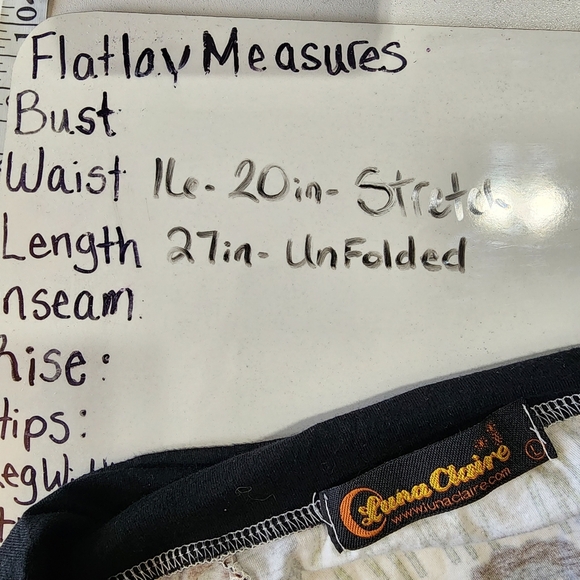 10
Flatlay Measures
Bust
Waist 16-20in-Stretch
Length 27in-UnFolded
nseam
Rise:
Hips:
Luna Claire
www.lunaclaire.com
L